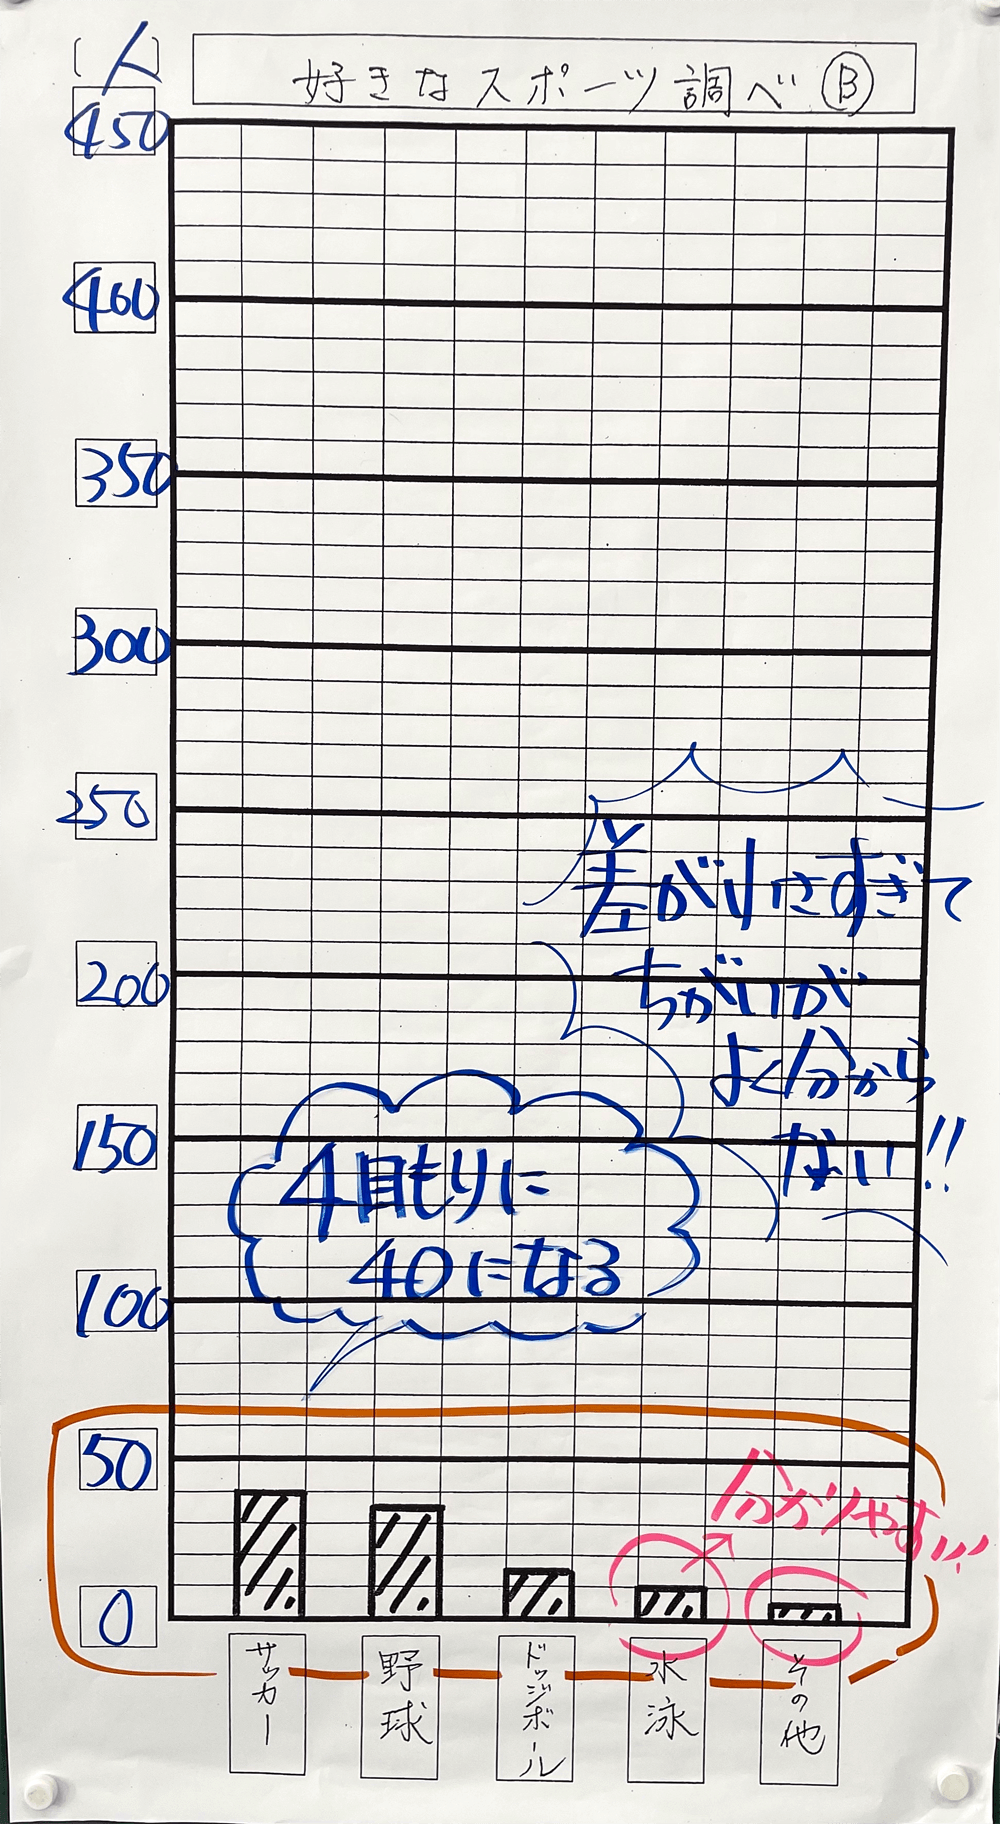 (人)
好きなスポーツ調べ Ⓑ
450
400
350
300
250
200
150
100
50
0
差が小さすぎて
ちがいが
よく分から
ない!!
4目もりに
40になる
分かりやすい!!
サッカー
野球
ドッジボール
水泳
その他